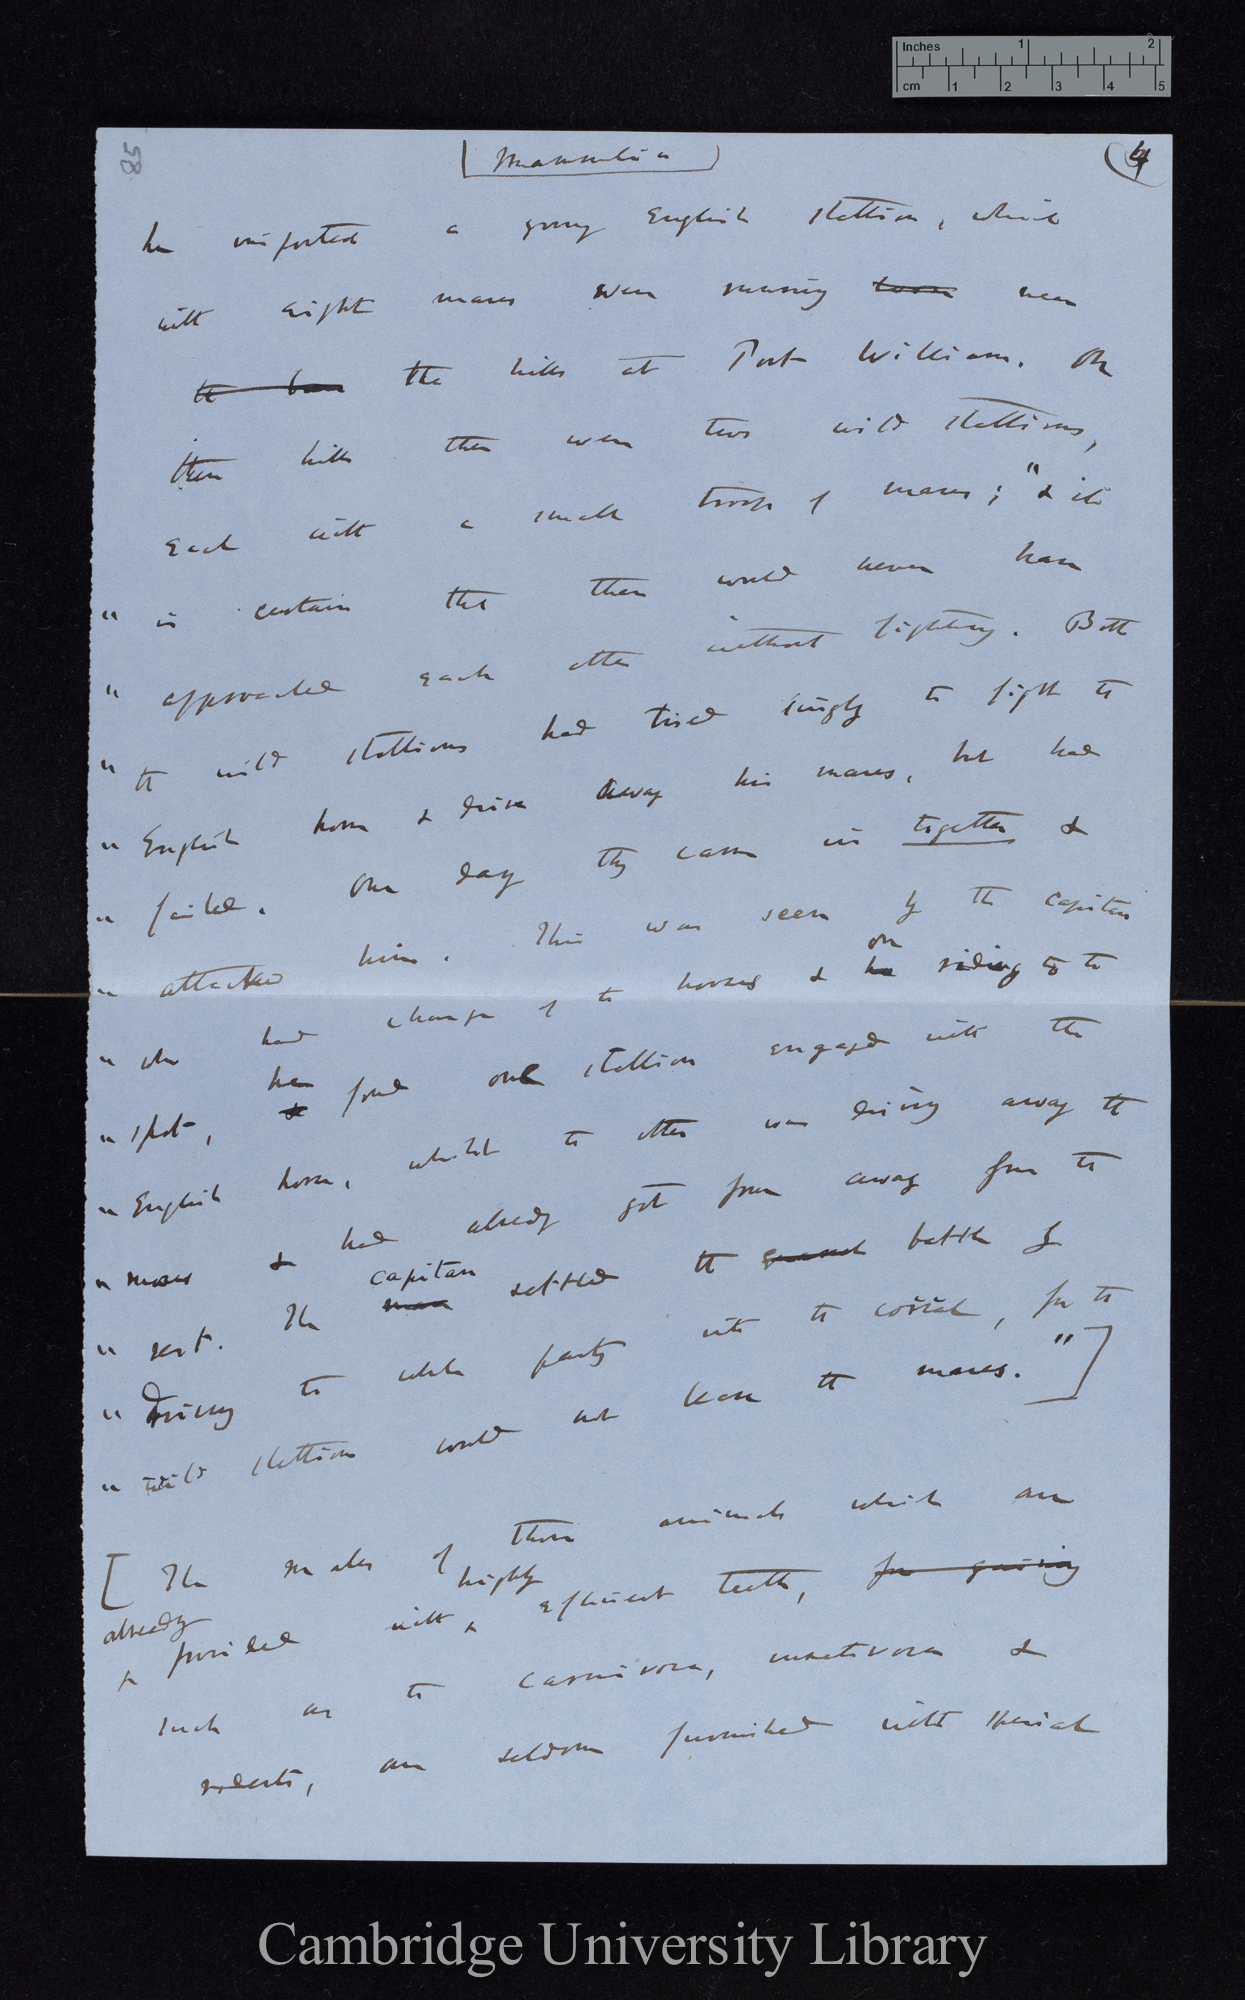 Inches 1 2
cm 1 2 3 4 5
58
[Mammalia]
(4
he imported a young English stallion, which
with eight mares were running near
the hills at Port William. On
these hills there were two wild stallions,
each with a small troop of mares; "& it
" is certain that these would never have
" approached each other without fighting. Both
" the wild stallions had tried singly to fight the
" English horse & drive away his mares, but had
" failed. One day they came in together &
" attacked him. This was seen by the capitan
" who had charge of the horses & he on riding to the
" spot, & he found one stallion engaged with the
" English horse, whilst the other was driving away the
" mares & had already got four away from the
" rest. The man capitan settled the battle by
" Driving the whole party into the corral, for the
" wild stallions would not leave the mares."]
[The males of those animals which are
already provided with highly efficient teeth, for gnawing
such as the carnivora, insectivora &
rodents, are seldom furnished with special
Cambridge University Library